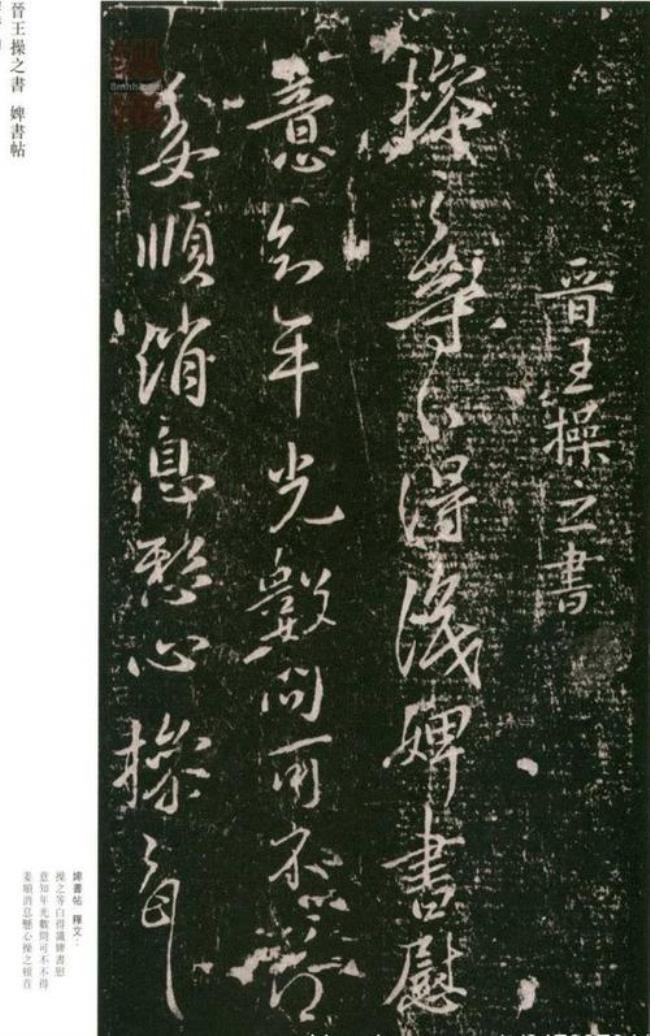 晉王操之書
操之等白得識婢書慰
意知年光數問可不不得
姜順消息懸心操之頓首
晉王操之書 婢書帖
婢書帖 釋文：
操之等白得識婢書慰
意知年光數問可不不得
姜順消息懸心操之頓首